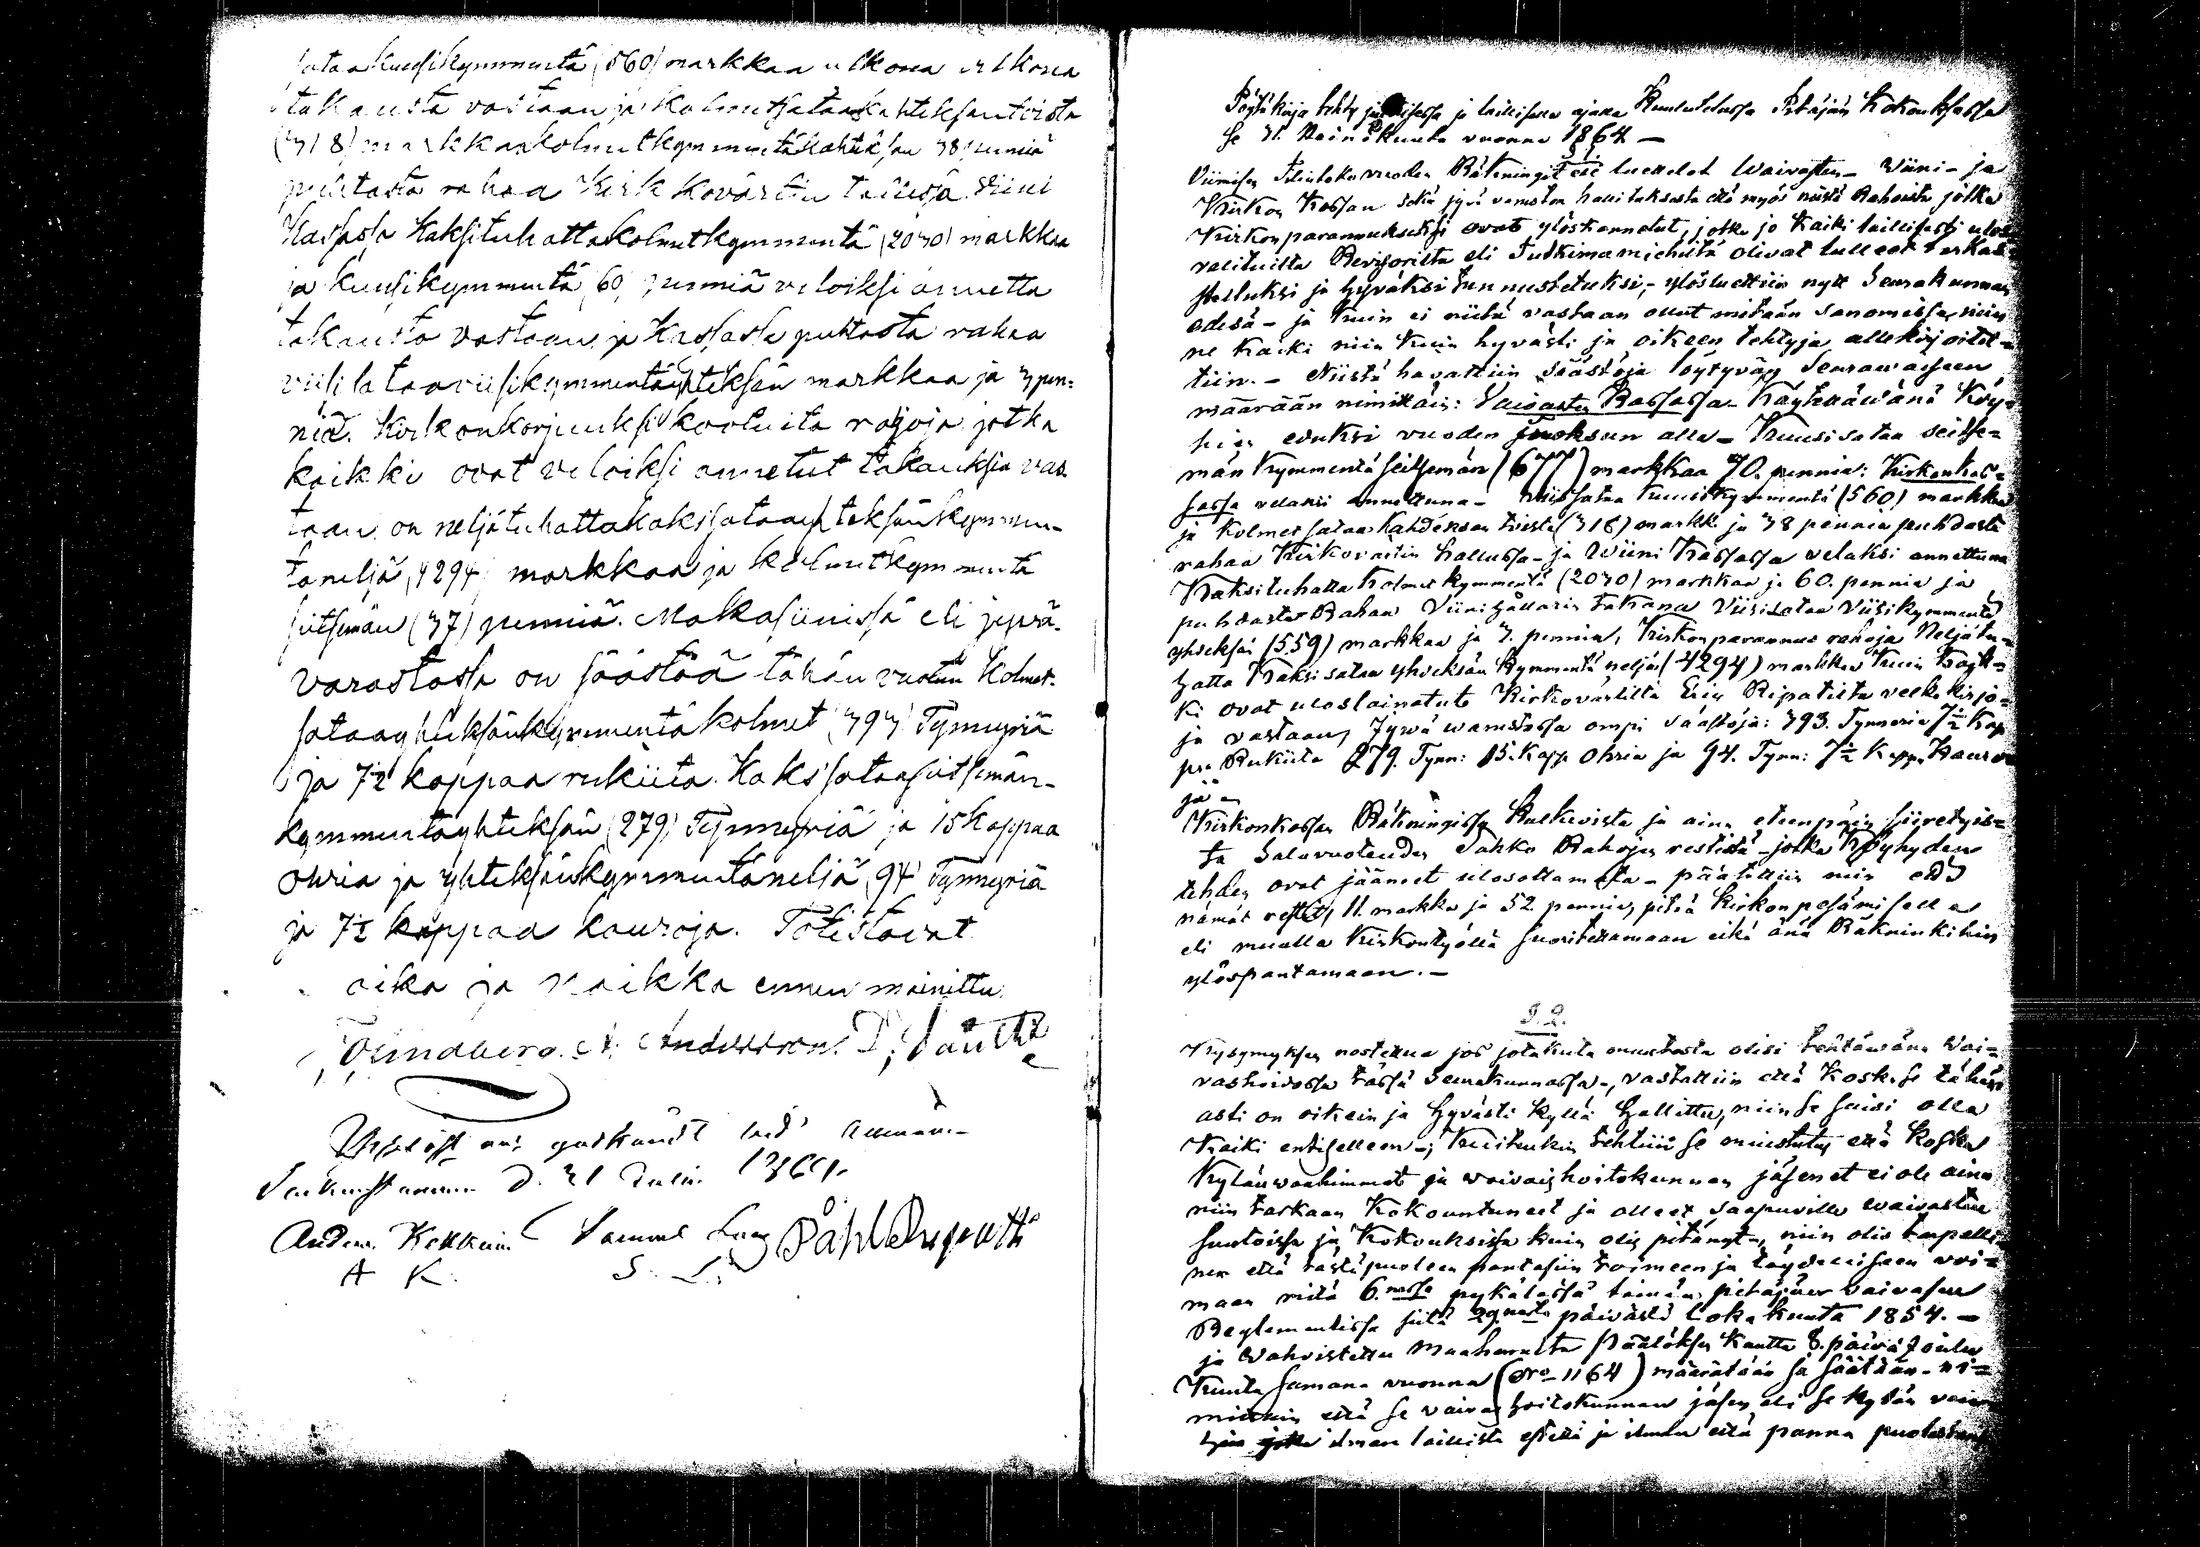 sataakuusikymmentä (560) markkaa ulkona
takausta vastaan ja kolmesataakahdeksantoista
(318) markkaakolmetkymmentäkahdeksan 38 penniä
puhtasta rahaa Kirkkovärtin tallissa. Viini
Kassassa Kaksituhattakolmetkymmentä (2030) markkaa
ja kuusikymmentä 60 penniä veloiksi annettu
takausta vastaan, ja Kassassa puhtasta rahaa
viisisataaviisikymmentäyhteksän markkaa ja 3 pen-
niä. Kirkonkorjuuksi kooluita rahoja jotka
kaikki ovat veloiksi annetut takauksia vas-
taan on neljätuhattakaksisataayhteksänkymmen-
täneljä (4294) markkaa ja kolmetkymmentä
seitsemän (37) penniä. Makasiinissa eli jyvä-
varastossa on säästöä tähän vuoteen Kolmet-
sataayhteksänkymmentäkolmet (393) Tynnyriä
ja 7½ kappaa rukiita. Kaksisataaseitsemän-
kymmentäyhteksän (279) Tynnyriä ja 15 kappaa
ohria ja yhteksänkymmentäneljä 94 Tynnyriä
ja 7½ kappaa kauroja. Totistavat
aika ja paikka ennen mainittu.
A. Andersson. P.
Uppläst och godkändt vid allmän
Sockenstämma d. 31 Julii 1864.
Anders Kekkoin Samuel Påhl
A K. S. L.
Pöytäkirja tehty julkisessa ja laillisessa ajassa Kuulutetussa Pitäjän Kokouksessa
se 31. Heinäkuuta vuonna 1864 —
§ 1.
Viimisen Tilintekovuoden Räkningit eli luettelot Waivasten- Wiini- ja
Kirkon Kassan sekä jyvä varaston hallituksesta että myös niistä Rahoista jotka
Kirkonparannukseksi ovat ylöskannetut, jotka jo kaiki laillisesti ulos-
valituilta Revisorilta eli Tutkimamiehiltä olivat tulleet tarkas-
telluksi ja hyväksi tunnustetuksi, - ylösluettiin nyt Seurakunnan
edesä - ja kuin ei niitä vastaan ollut mitään sanomista, niin
ne kaiki niin kuin hyvästi ja oikeen tehtyjä allekirjoitet-
tiin. - Niistä havattiin säästöjä löytyvän Seuraavaiseen
määrään nimittäin: Vaivasten Kassassa - Käytettävänä Köy-
hien eduksi vuoden juoksun alla - Kuusisataa seitse-
män Kymmentä seitsemän (677) markkaa 70. penniä: Kirkonkas-
sassa velaksi annettuna - viissataa kuusikymmentä (560) markka
ja Kolmet sataa Kahdeksan toista (318) markk. ja 38 penniä puhdasta
rahaa Kirkovärtin hallussa - ja Wiini Kassassa velaksi annettuna
Kaksituhatta Kolmet kymmentä (2030) markkaa ja 60. penniä ja
puhdasta Rahaa Viini takana Viisisataa Viisikymmentä
yheksän (559) markkaa ja 3. penniä, Kirkon parannus rahoja Neljätu-
hatta Kaksi sataa yheksän kymmentä neljä (4294) markkaa
ki ovat uloslainatut Kirkovärtiltä
ja vastaan, Jyvä varastossa ompi säästöjä: 393. Tynneriä 7½ Kap
pa Rukiita 279. Tynn: 15. Kapp Ohria ja 94. Tynn: 7½ Kapp Kauro
ja -
Kirkonkassan Räkningissä Kulkevista ja aina eteenpäin siiretyis-
tä Rahojen restistä - jotka Köyhyden
tehden ovat jääneet ulosottamata - päätettiin niin että
nämät restit, 11. markka ja 52. penniä, pitää kirkon pesämisellä
eli muulla Kirkontyöllä suoritettamaan eikä änä Räkninkihin
ylöspantamaan. —
§. 2.
Kysymyksen nostettua jos jotakuta muutosta olisi tehtävänä Vai-
vashoidossa tässä Seurakunnassa -, vastattiin että koska se tähän
asti on oikein ja hyvästi kyllä hallittu, niin se saisi olla
kaiki entisellään -; kuitenkin tehtiin se muistutus että koska
Kylänvanhimmat ja vaivaishoitokunnan jäsenet ei ole aina
niin tarkaan kokountuneet ja olleet saapuvilla vaivasten
huutoissa ja kokouksissa kuin olis pitänyt -, niin olis tarpelli-
nen että tästäpuoleen pantaisiin toimeen ja täydelliseen voi-
maan mitä 6. pykälässä tämän pitäjän Vaivasten
Reglementissa siitä 29 päivästä lokakuuta 1854. —
ja vahvistettu Maaherralta Päätöksen kautta 8. päivä Joulu
kuuta samana vuonna (No 1164) määrätään ja säätään - ni-
mittäin että se vaivashoitokunnan jäsen eli se kylän
ilman laillista estettä ja ilman että panna puolestansa